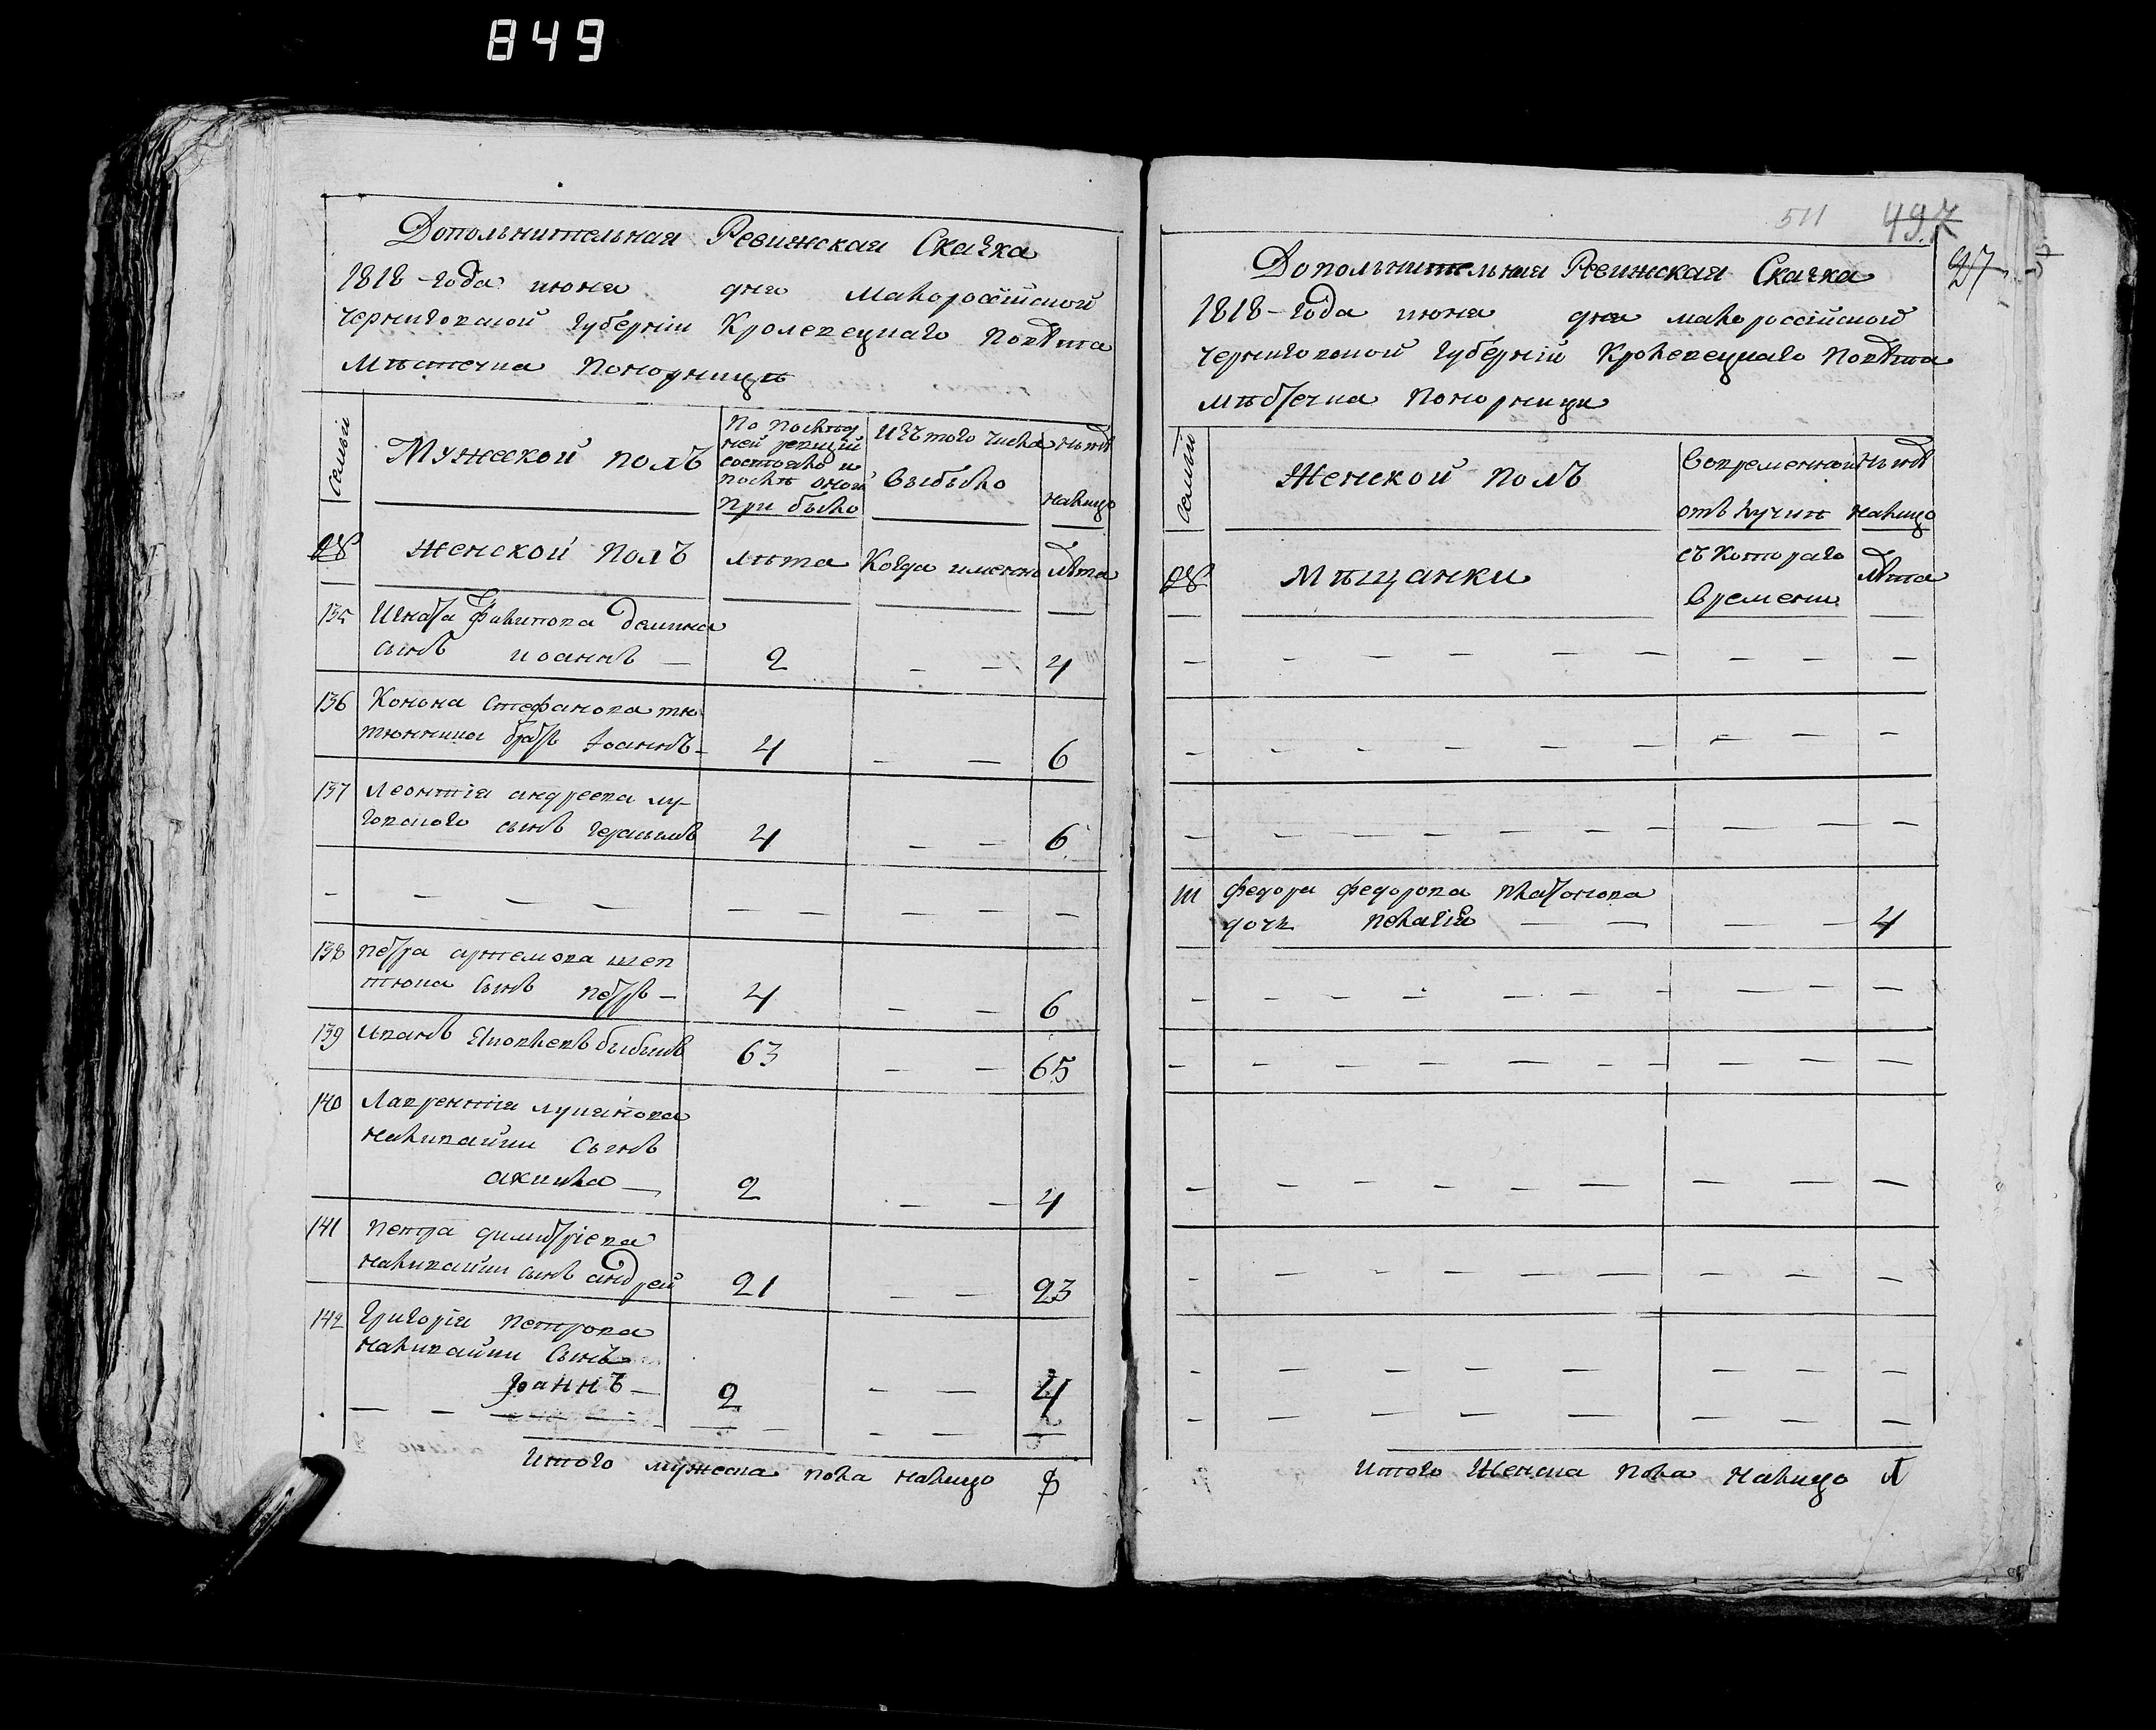 849
Дополнительная Ревижская Сказка
1818-года июня дня Малороссійской
Черниговской Губерніи Кролевецкаго Повѣта
Мѣстечка Понорницѣ
Семьи
Мужеской полъ
По послѣд
ней ревизіи
состояло и
послѣ оной
при было
Изъ того числа
выбыло
Нынѣ
налицо
Женской полъ
лѣта
Когда именно
лѣта
135 Игната Филипова
сынъ иоаннъ — 2 — — 4
136 Конона Стефанова тю
тюнника братъ Іоаннъ — 4 — — 6
137 Леонтія андреева лу-
говского сынъ герасимъ 4 — — 6
— — — — — — — — —
138 петра артемова шеп
тюка сынъ петръ — 4 — — 6
139 иванъ 63 — — 65
140 Лаврентія лукянова
наливайки сынъ
акилла — 2 — — 4
141 петра димитріева
наливайки сынъ андрей 21 — — 23
142 григорія петрова
наливайки сынъ
Іоаннъ — 2 — — 4
Итого мужеска пола налицо 8
511 497
Дополнительная Ревижская Сказка
1818-года июня дня малороссійской
черниговской губерніи Кролевецкаго Повѣта
мѣстечка Понорници
Семьи
Женской полъ
Вовременной
отълучкѣ
Нынѣ
налицо
Мѣщанки
съ котораго
времени
лѣта
111 федора федорова платонова
дочь пелагія — — — — 4
Итого Женска пола налицо 1